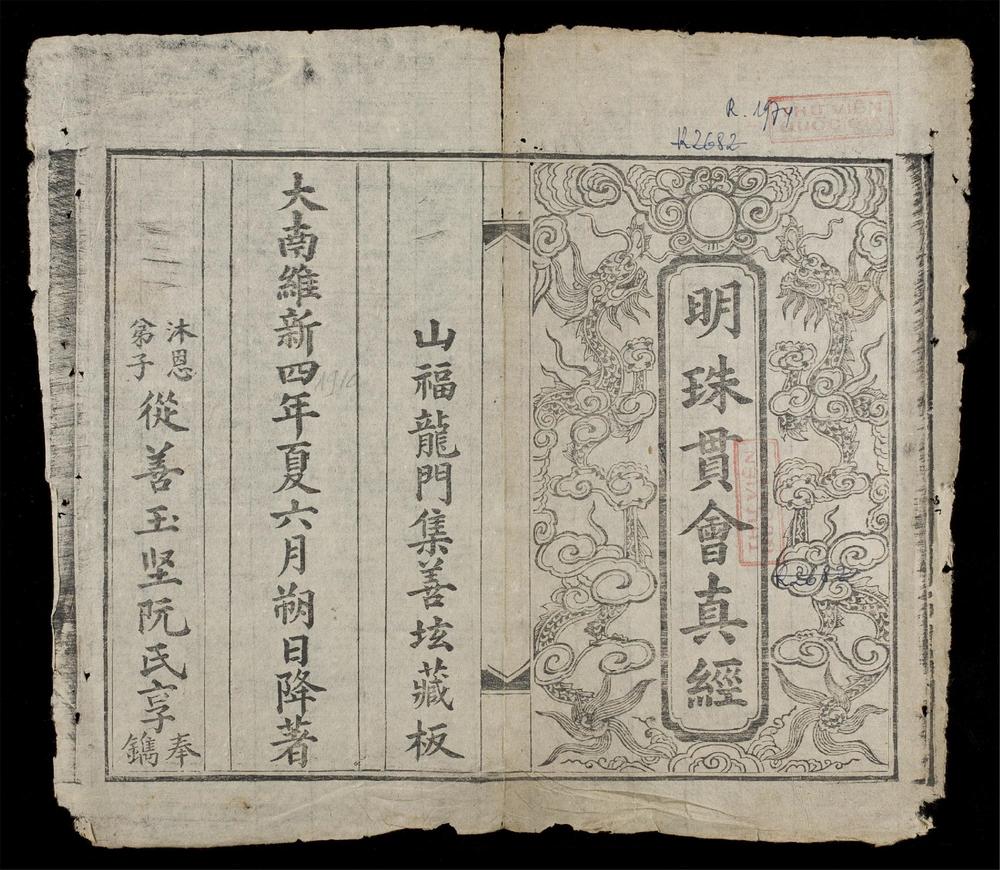 R. 1974
THƯ VIỆN
QUỐC GIA
R2682
明珠貫會真經
R2682
山福龍門集善坛藏板
大南維新四年夏六月朔日降著
1910
沐恩
弟子
從善玉坚阮氏享
奉
鐫